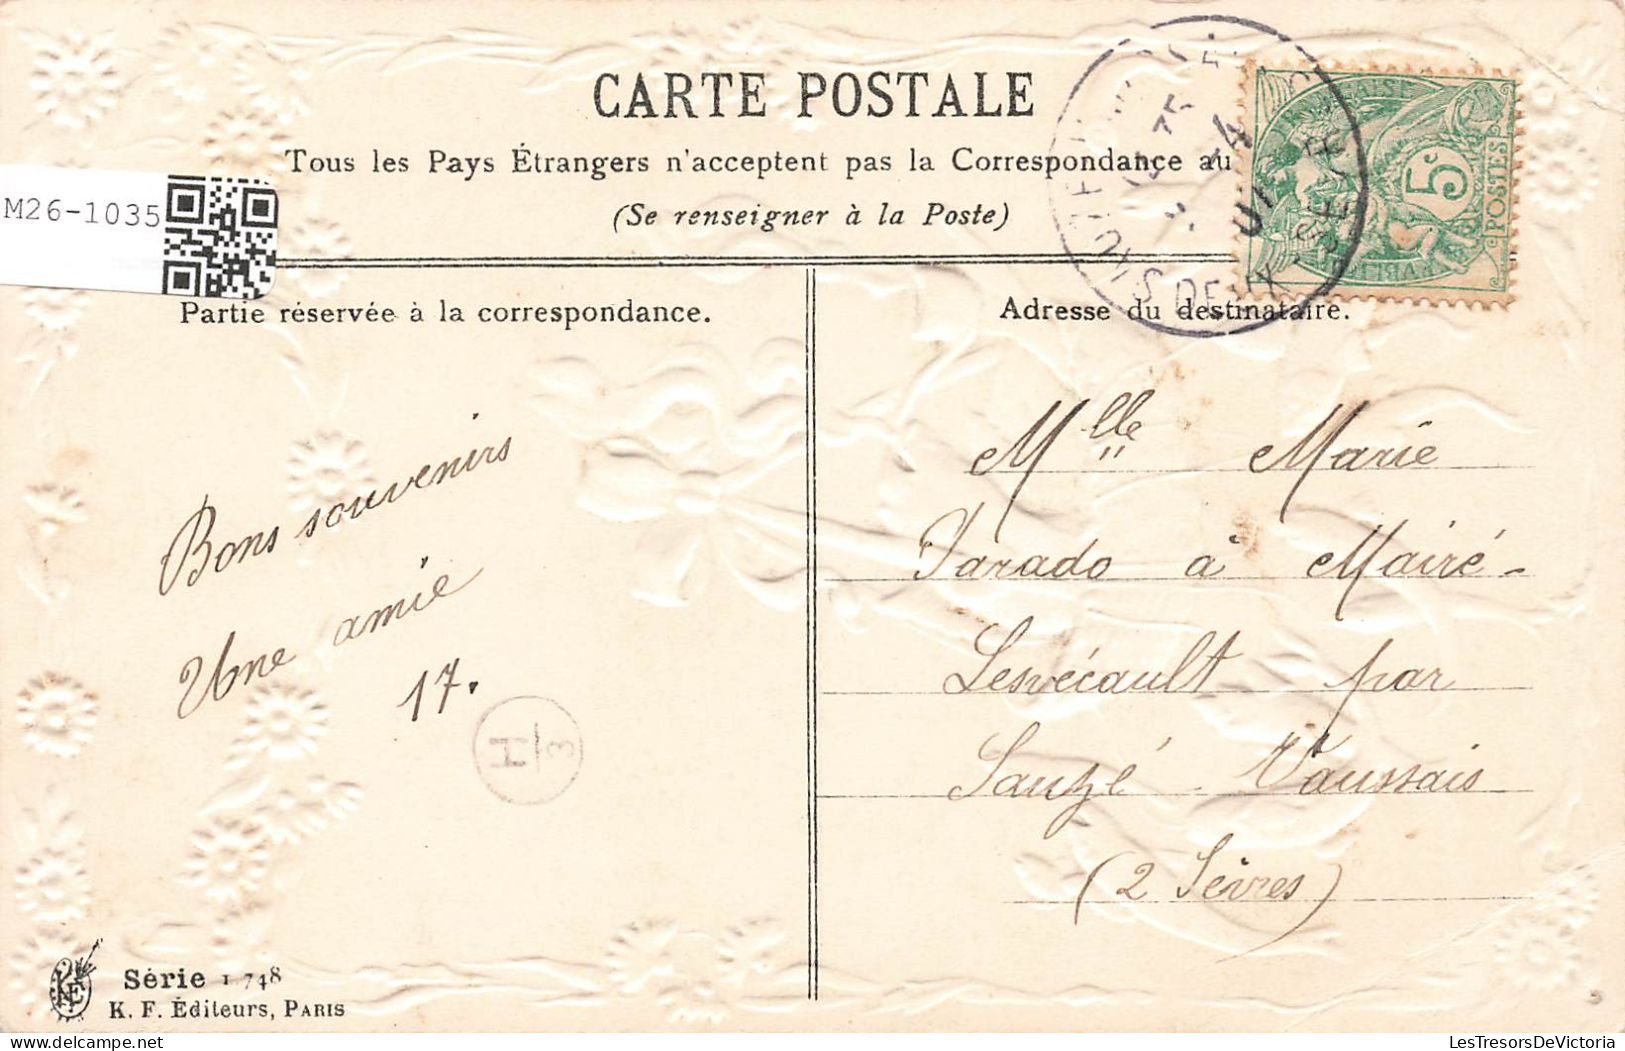 CARTE POSTALE
Tous les Pays Étrangers n'acceptent pas la Correspondance au
(Se renseigner à la Poste)
M26-1035
Partie réservée à la correspondance.
Adresse du destinataire.
5c
POSTES
DEUX-SEVRES
Bons souvenirs
Une amie
17.
H/3
Mlle Marie
Parado à Mairé-
Lesvécault par
Sauzé Vaussais
(2 Sèvres)
KF
Série 1 748
K. F. Éditeurs, PARIS
LesTresorsDeVictoria